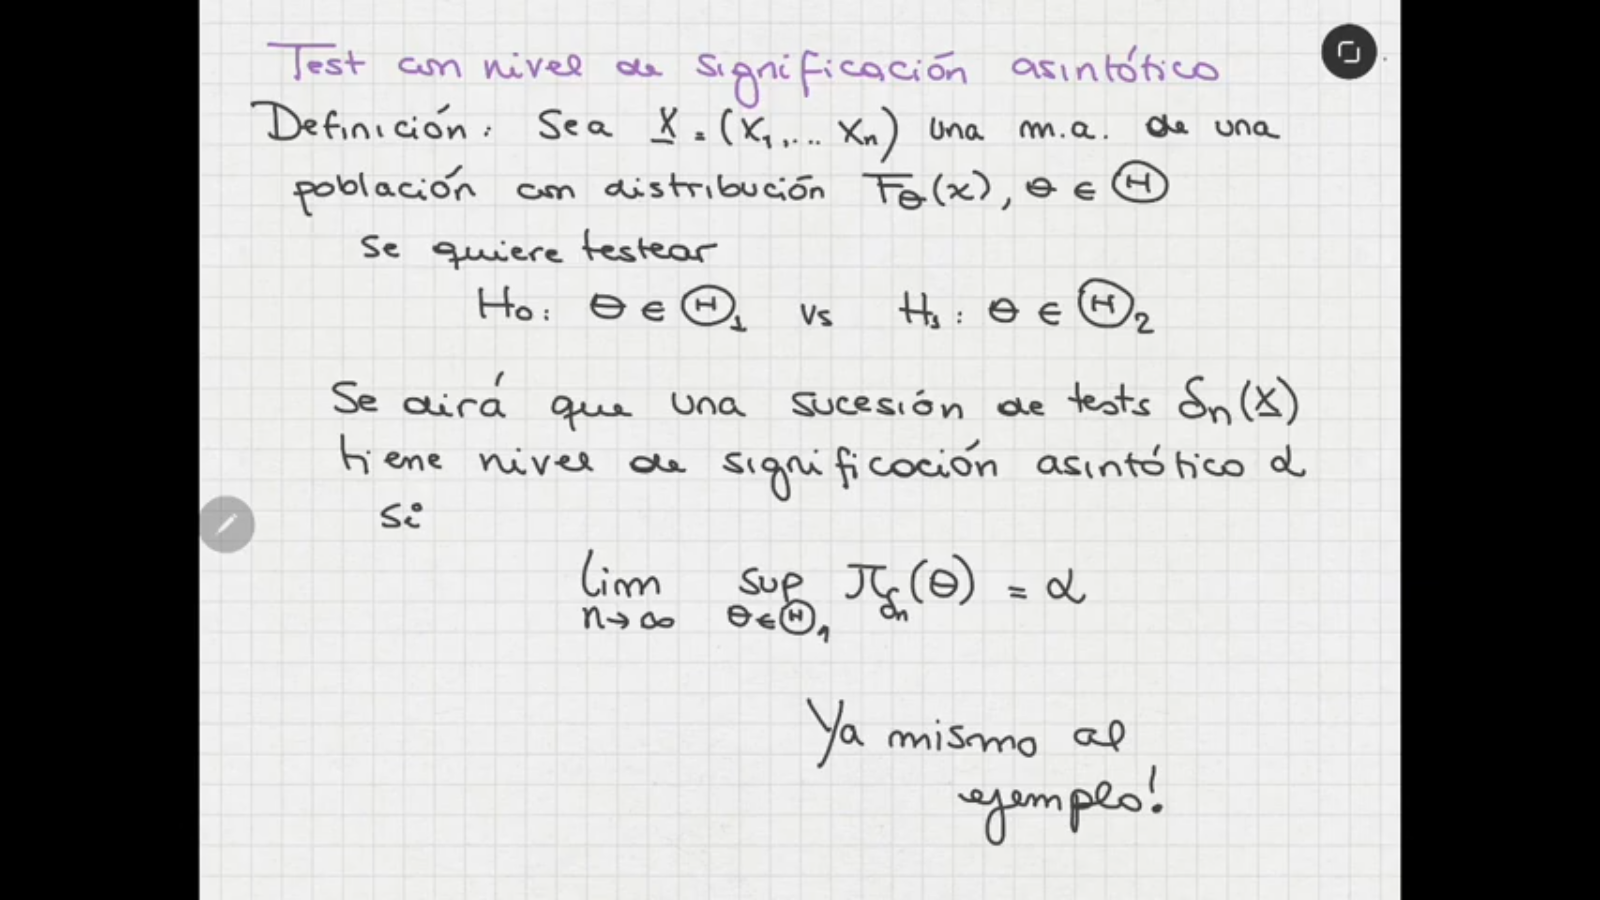 Test con nivel de significación asintótico
Definición: Sea X = (X₁,... Xₙ) una m.a. de una
población con distribución F_θ(x), θ ∈ Θ
se quiere testear
H₀: θ ∈ Θ₁ vs H₁: θ ∈ Θ₂
Se dirá que una sucesión de tests δₙ(X)
tiene nivel de significación asintótico α
si
lim sup π_δₙ(θ) = α
n→∞ θ∈Θ₁
Ya mismo al
ejemplo!